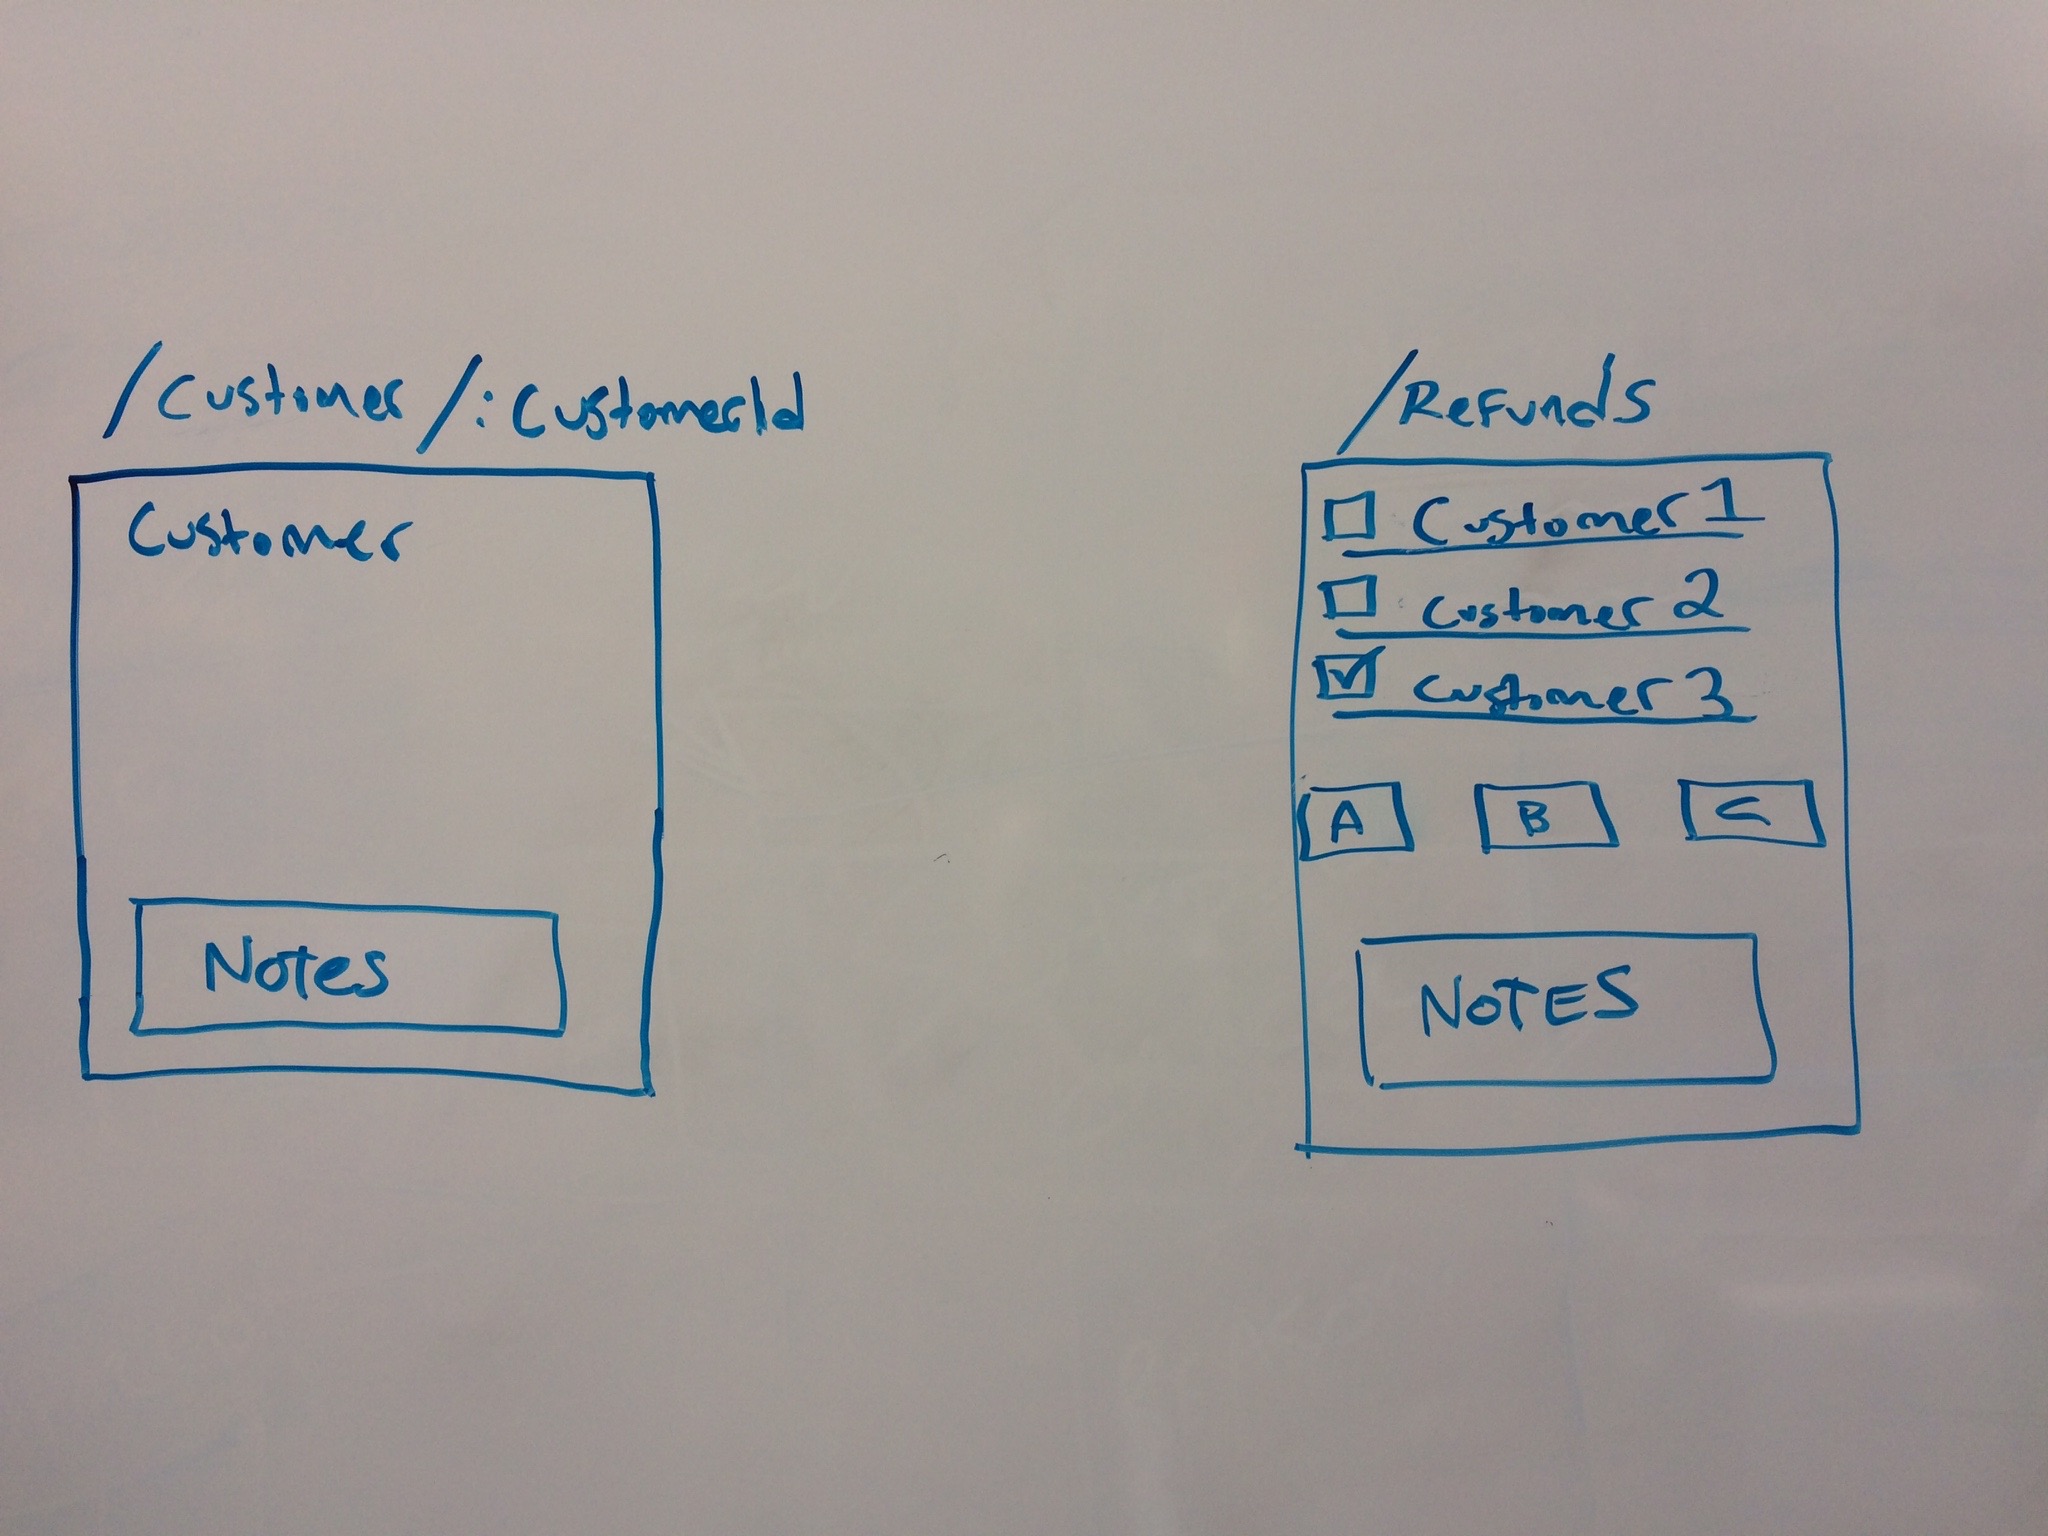 /Customer/:CustomerId
Customer
Notes
/Refunds
Customer 1
Customer 2
Customer 3
A B C
NOTES